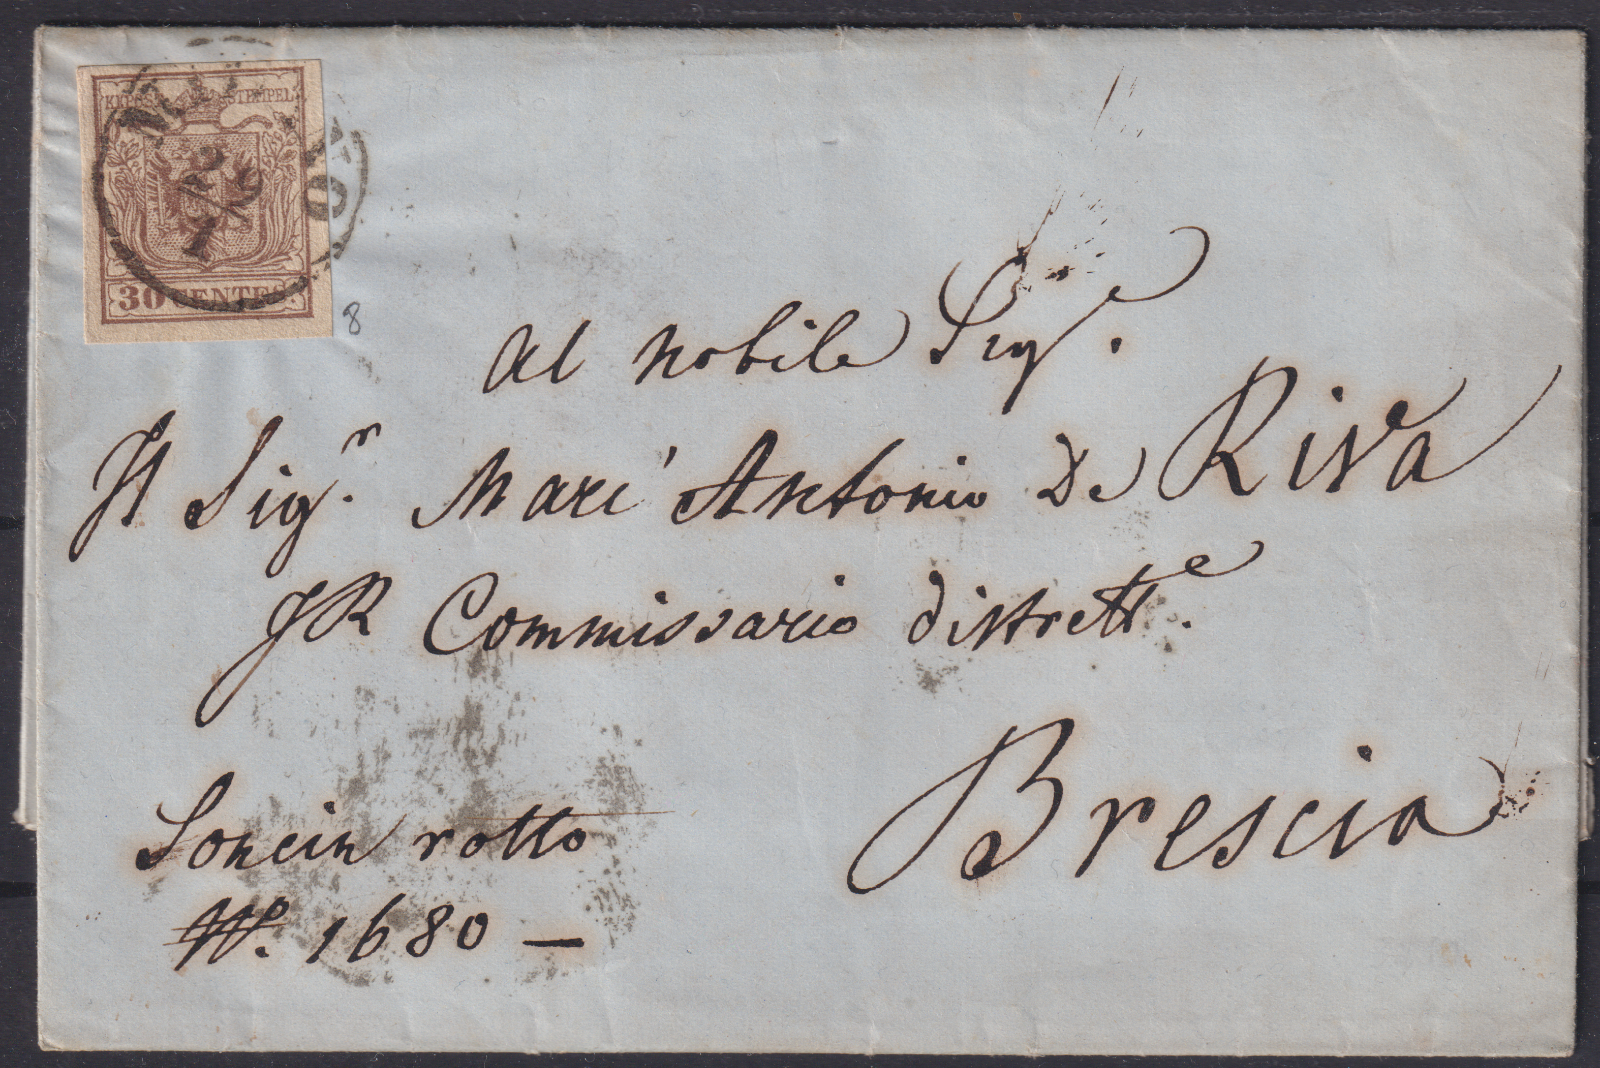 KKPOST STEMPEL
30 CENTES.
8
Al Nobile Sigʳᵉ.
Il Sigʳ. Marc' Antonio De Riva
IR Commissario distrettᵉ.
Brescia
Soncin rotto
Nº. 1680 —